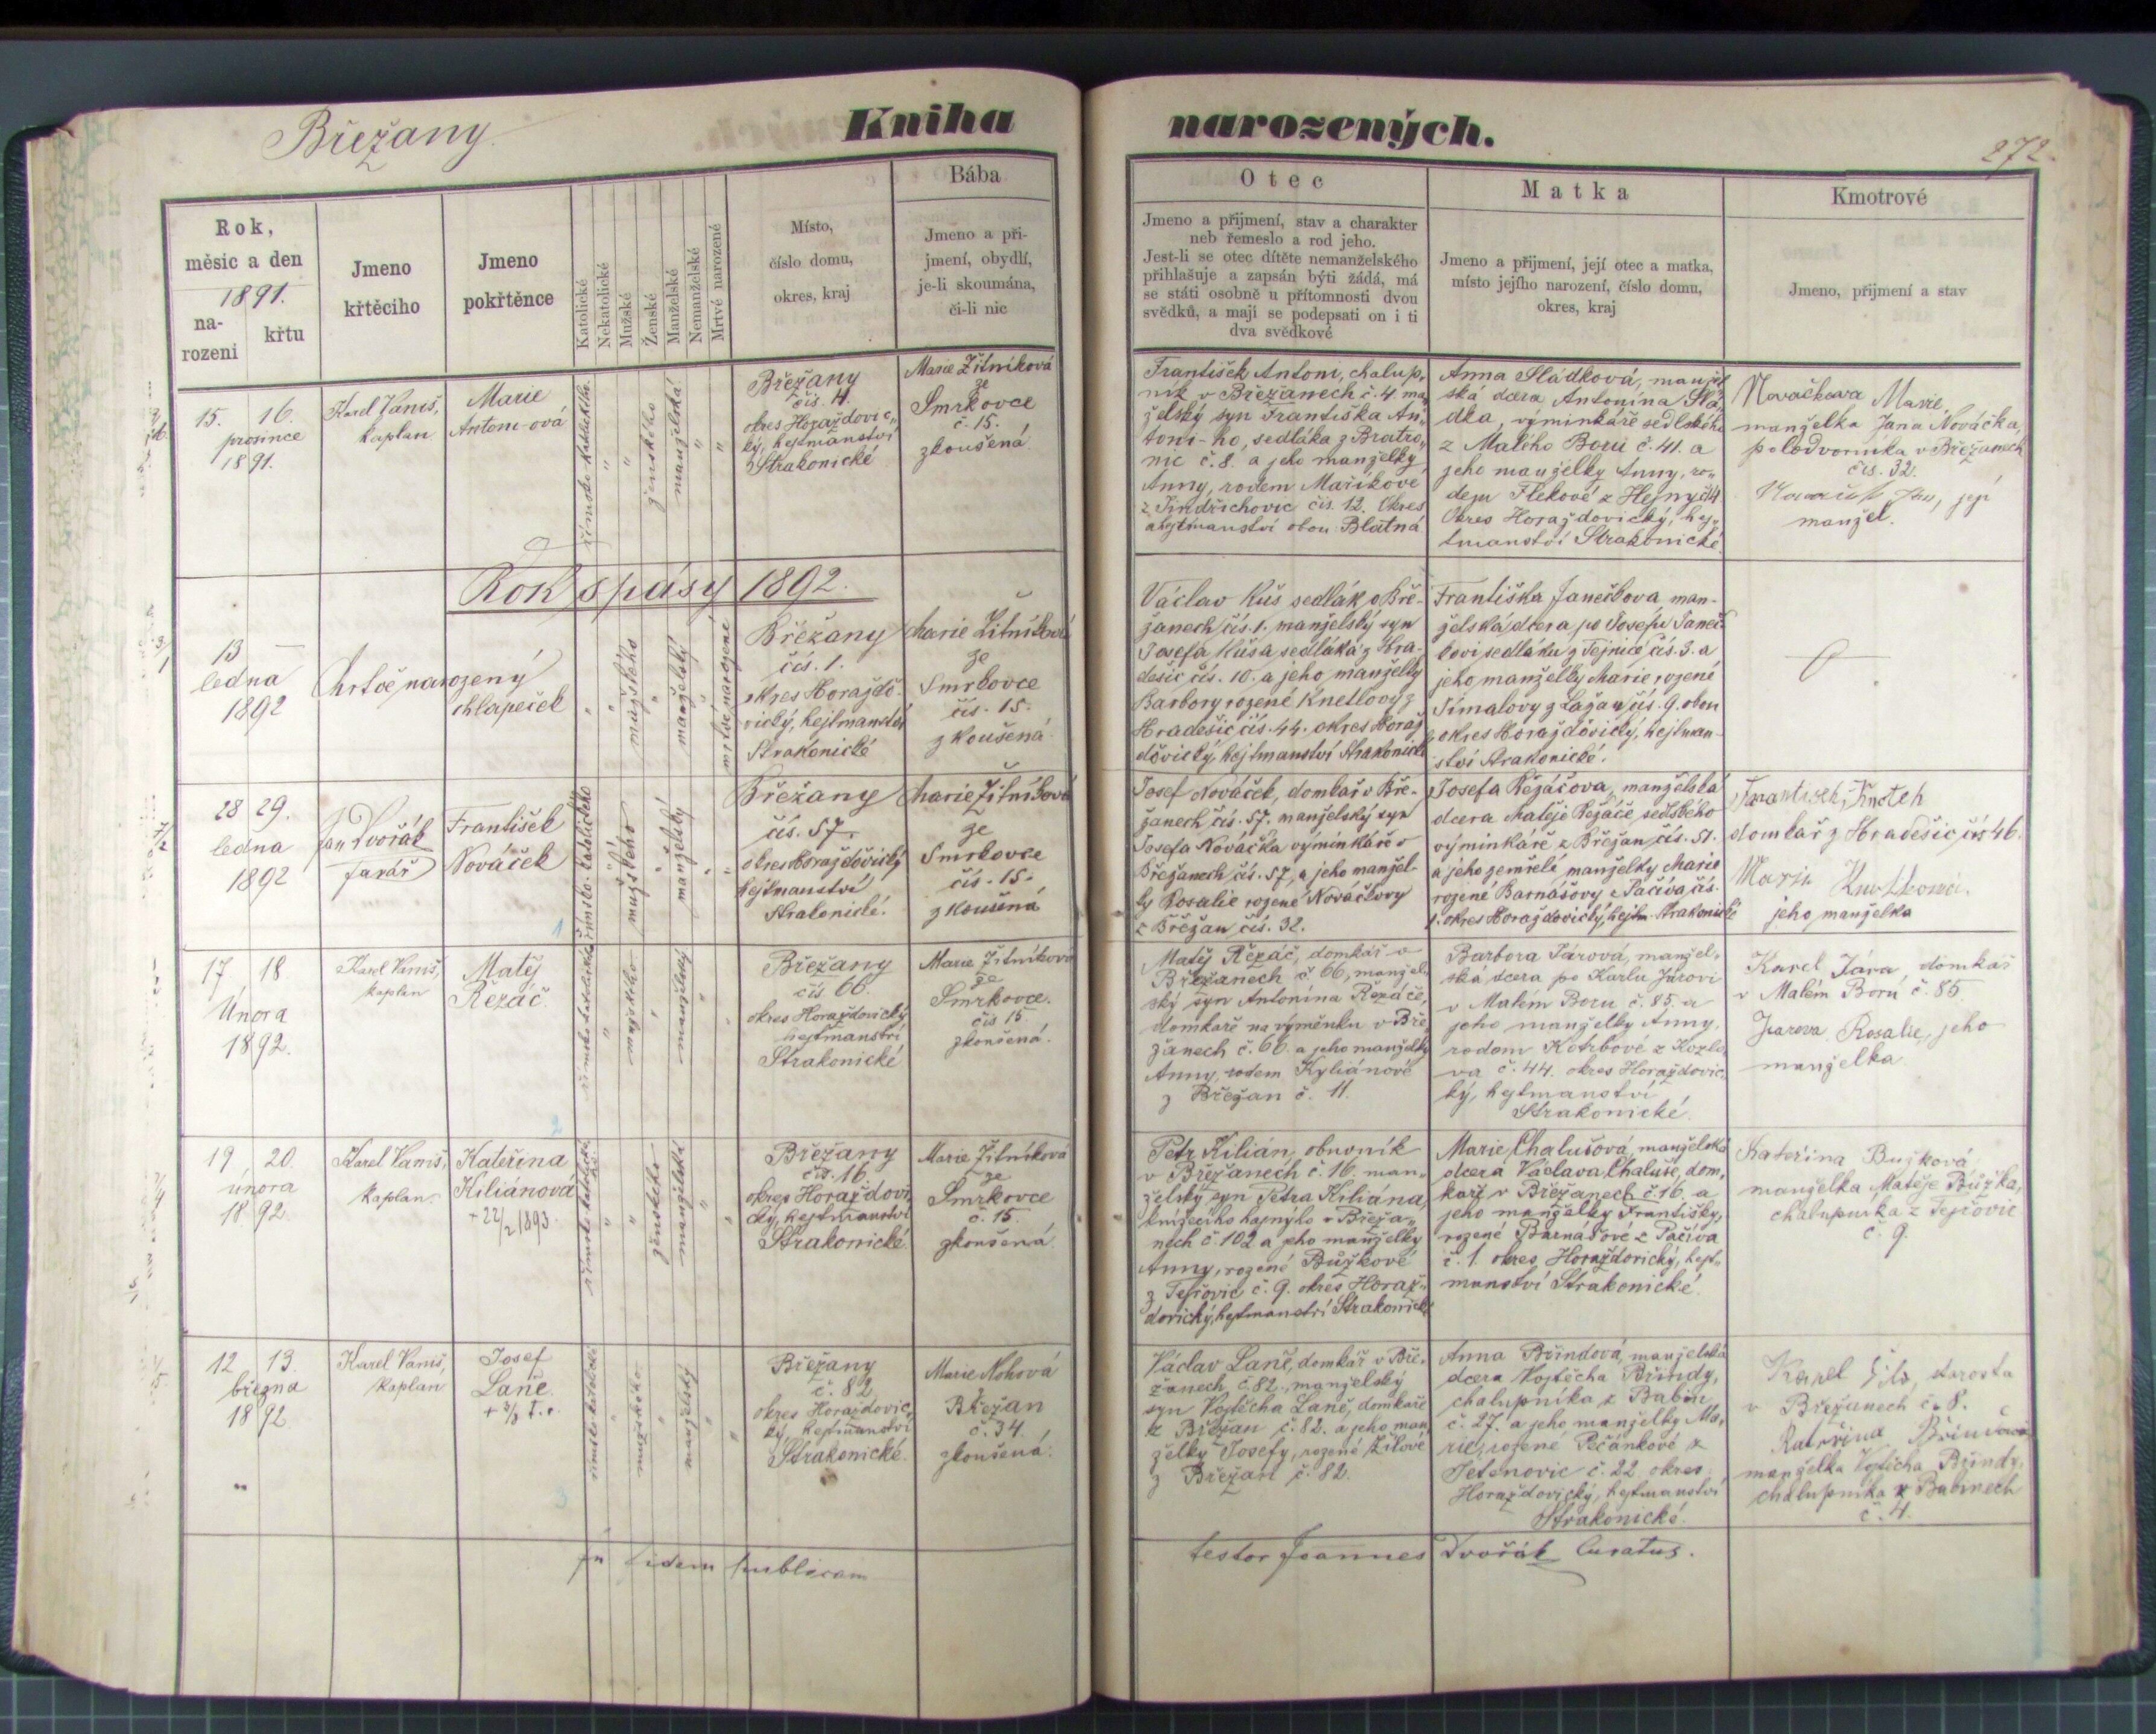 Břežany
Kniha
narozených.
272.
Rok,
měsíc a den
1891.
na-
rození
křtu
Jmeno
křtěcího
Jmeno
pokřtěnce
Katolické
Nekatolické
Mužské
Ženské
Manželské
Nemanželské
Mrtvé narozené
Místo,
číslo domu,
okres, kraj
Bába
Jmeno a při-
jmení, obydlí,
je-li skoumána,
či-li nic
Otec
Jmeno a přijmení, stav a charakter
neb řemeslo a rod jeho.
Jest-li se otec dítěte nemanželského
přihlašuje a zapsán býti žádá, má
se státi osobně u přítomnosti dvou
svědků, a mají se podepsati on i ti
dva svědkové
Matka
Jmeno a přijmení, její otec a matka,
místo jejího narození, číslo domu,
okres, kraj
Kmotrové
Jmeno, přijmení a stav
15. 16.
prosince
1891.
Karel Vaniš,
kaplan
Marie
Antoni-ová
římsko katolického
ženského
manželská
Břežany
čís. 4.
okres Horažďovic„
ký, hejtmanství
Strakonické
Marie Žitníková
ze
Smrkovce
č. 15.
zkoušená
František Antoni, chalup„
ník v Břežanech č. 4. man
želský syn Františka An„
toni-ho, sedláka z Bratro„
nic č. 8. a jeho manželky
Anny, rodem Maříkové
z Jindřichovic čís. 12. Okres
a hejtmanství obou Blatná
Anna Sládková, manžel
ská dcera Antonína Slá„
dka, výminkáře sedlského
z Malého Boru č. 41. a
jeho manželky Anny, ro„
dem Flekové z Hejnyč 4
Okres Horažďovický, hej„
tmanství Strakonické.
Nováčkova Marie,
manželka Jana Nováčka,
polodvorníka v Břežanech
čís. 32.
Jan, její
manžel.
Rok spásy 1892.
13
ledna
1892
Mrtvě narozený
chlapeček
mužského
manželský
mrtvě narozené
Břežany
čís. 1.
okres Horažďo-
vický, hejtmanství
Strakonické
Marie Žitníková
ze
Smrkovce
čís. 15.
zkoušená
Václav Kůs sedlák v Bře-
žanech čís. 1. manželský syn
Josefa Kůsa sedláka z Hra-
dešic čís. 10. a jeho manželky
Barbory rozené Knetlovy z
Hradešic čís. 44. okres Horaž
ďovický, hejtmanství Strakonické
Františka Janečkova man-
želská dcera po Josefu Janeč-
kovi sedláku z Tejnice čís. 3. a
jeho manželky Marie rozené
Šimalovy z Lažan čís. 9. obou
okres Horažďovický, hejtman-
ství Strakonické.
28 29.
ledna
1892
Jan Dvořák
farář
František
Nováček
1
římsko-katolického
mužského
manželský
Břežany
čís. 57.
okres Horažďovický
hejtmanství
Strakonické.
Marie Žitníková
ze
Smrkovce
čís. 15.
zkoušená
Josef Nováček, domkář v Bře-
žanech čís. 57. manželský syn
Josefa Nováčka výminkáře v
Břežanech čís. 57, a jeho manžel-
ky Rosalie rozené Nováčkovy
z Břežan čís. 32.
Josefa Řezáčova, manželská
dcera Matěje Řezáče sedlského
výminkáře z Břežan čís. 51.
a jeho zemřelé manželky Marie
rozené Barnášovy z Pačiva čís.
1. okres Horažďovický, hejtm. Strakonické
František Knetch
domkář z Hradešic čís 46.
Marie
jeho manželka
17 18
Února
1892.
Karel Vaniš,
kaplan
Matěj
Řezáč.
2
římsko katolického
mužského
manželský
Břežany
čís 66.
okres Horažďovický
hejtmanství
Strakonické
Marie Žitníková
ze
Smrkovce.
čís 15
zkoušená.
Matěj Řezáč, domkář v
Břežanech č 66, manžel„
ský syn Antonína Řezáče,
domkaře na výměnku v Bře„
žanech č. 66. a jeho manželky
Anny, rodem Kyliánové
z Břežan č. 11.
Barbora Járová, manžel„
ská dcera po Karlu Járovi
v Malem Boru č. 85. a
jeho manželky Anny,
rodom Kotrbové z Kozlo„
va č. 44. okres Horažďovic„
ký, hejtmanství
Strakonické.
Karel Jára, domkář
v Malém Boru č. 85
Jarova Rosalie, jeho
manželka
19 20.
února
1892.
Karel Vaniš,
kaplan.
Kateřina
Kiliánová
+ 22/2 1893.
římsko katolické
ženského
manželská
Břežany
čís. 16.
okres Horažďovi„
cký, hejtmanství
Strakonické
Marie Žitníková
ze
Smrkovce
č. 15.
zkoušená.
Petr Kilián, obuvník
v Břežanech č. 16. man„
želský syn Petra Kiliána,
knížecího hajného v Břeža„
nech č 102 a jeho manželky
Anny, rozené Bužkové
z Tejřovic č. 9. okres Horaž„
ďovický, hejtmanství Strakonické
Marie Chalušová, manželská
dcera Václava Chaluše, dom„
káře v Břežanech č. 16. a
jeho manželky Františky,
rozené Barnášové z Pačiva
č. 1. okres Horažďovický, hejt„
manství Strakonické.
Kateřina Bužková,
manželka Matěje Bůžka,
chalupníka z Tejřovic
č. 9.
12 13.
března
1892.
Karel Vaniš,
kaplan
Josef
Laně.
3
římsko katolické
mužského
manželský
Břežany
č. 82
okres Horažďovic„
ký, hejtmanství
Strakonické.
Marie Nohová
Břežan
č. 34.
zkoušená.
Václav Laně, domkář v Bře„
žanech č. 82., manželský
syn Vojtěcha Laně, domkaře
z Břežan č. 82. a jeho man„
želky Josefy, rozené Žilové
z Břežan č. 82.
Anna Břindová, manželská
dcera Vojtěcha Břindy,
chalupníka z Babin
č. 27. a jeho manželky Ma„
rie, rozené Pečánkové z
Jetenovic č. 22. okres
Horažďovický, hejtmanství
Strakonické.
Karel starosta
v Břežanech č. 8.
Kateřina Břindová
manželka Vojtěcha Břindy,
chalupníka z Babinech
č. 4.
In fidem publicam
testor Joannes Dvořák Curatus.